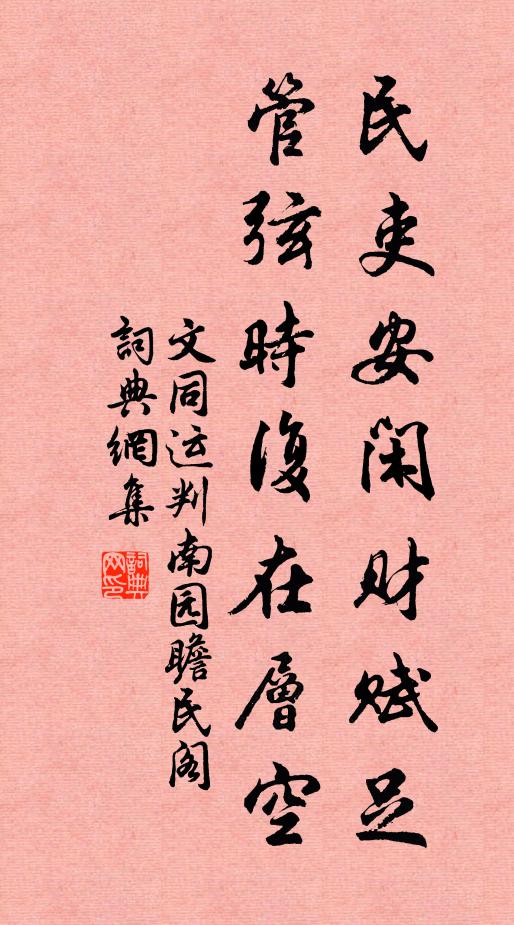 民吏安闲财赋足
管弦時復在層空
文同运判南园瞻民阁
詞典網集
詞典網印